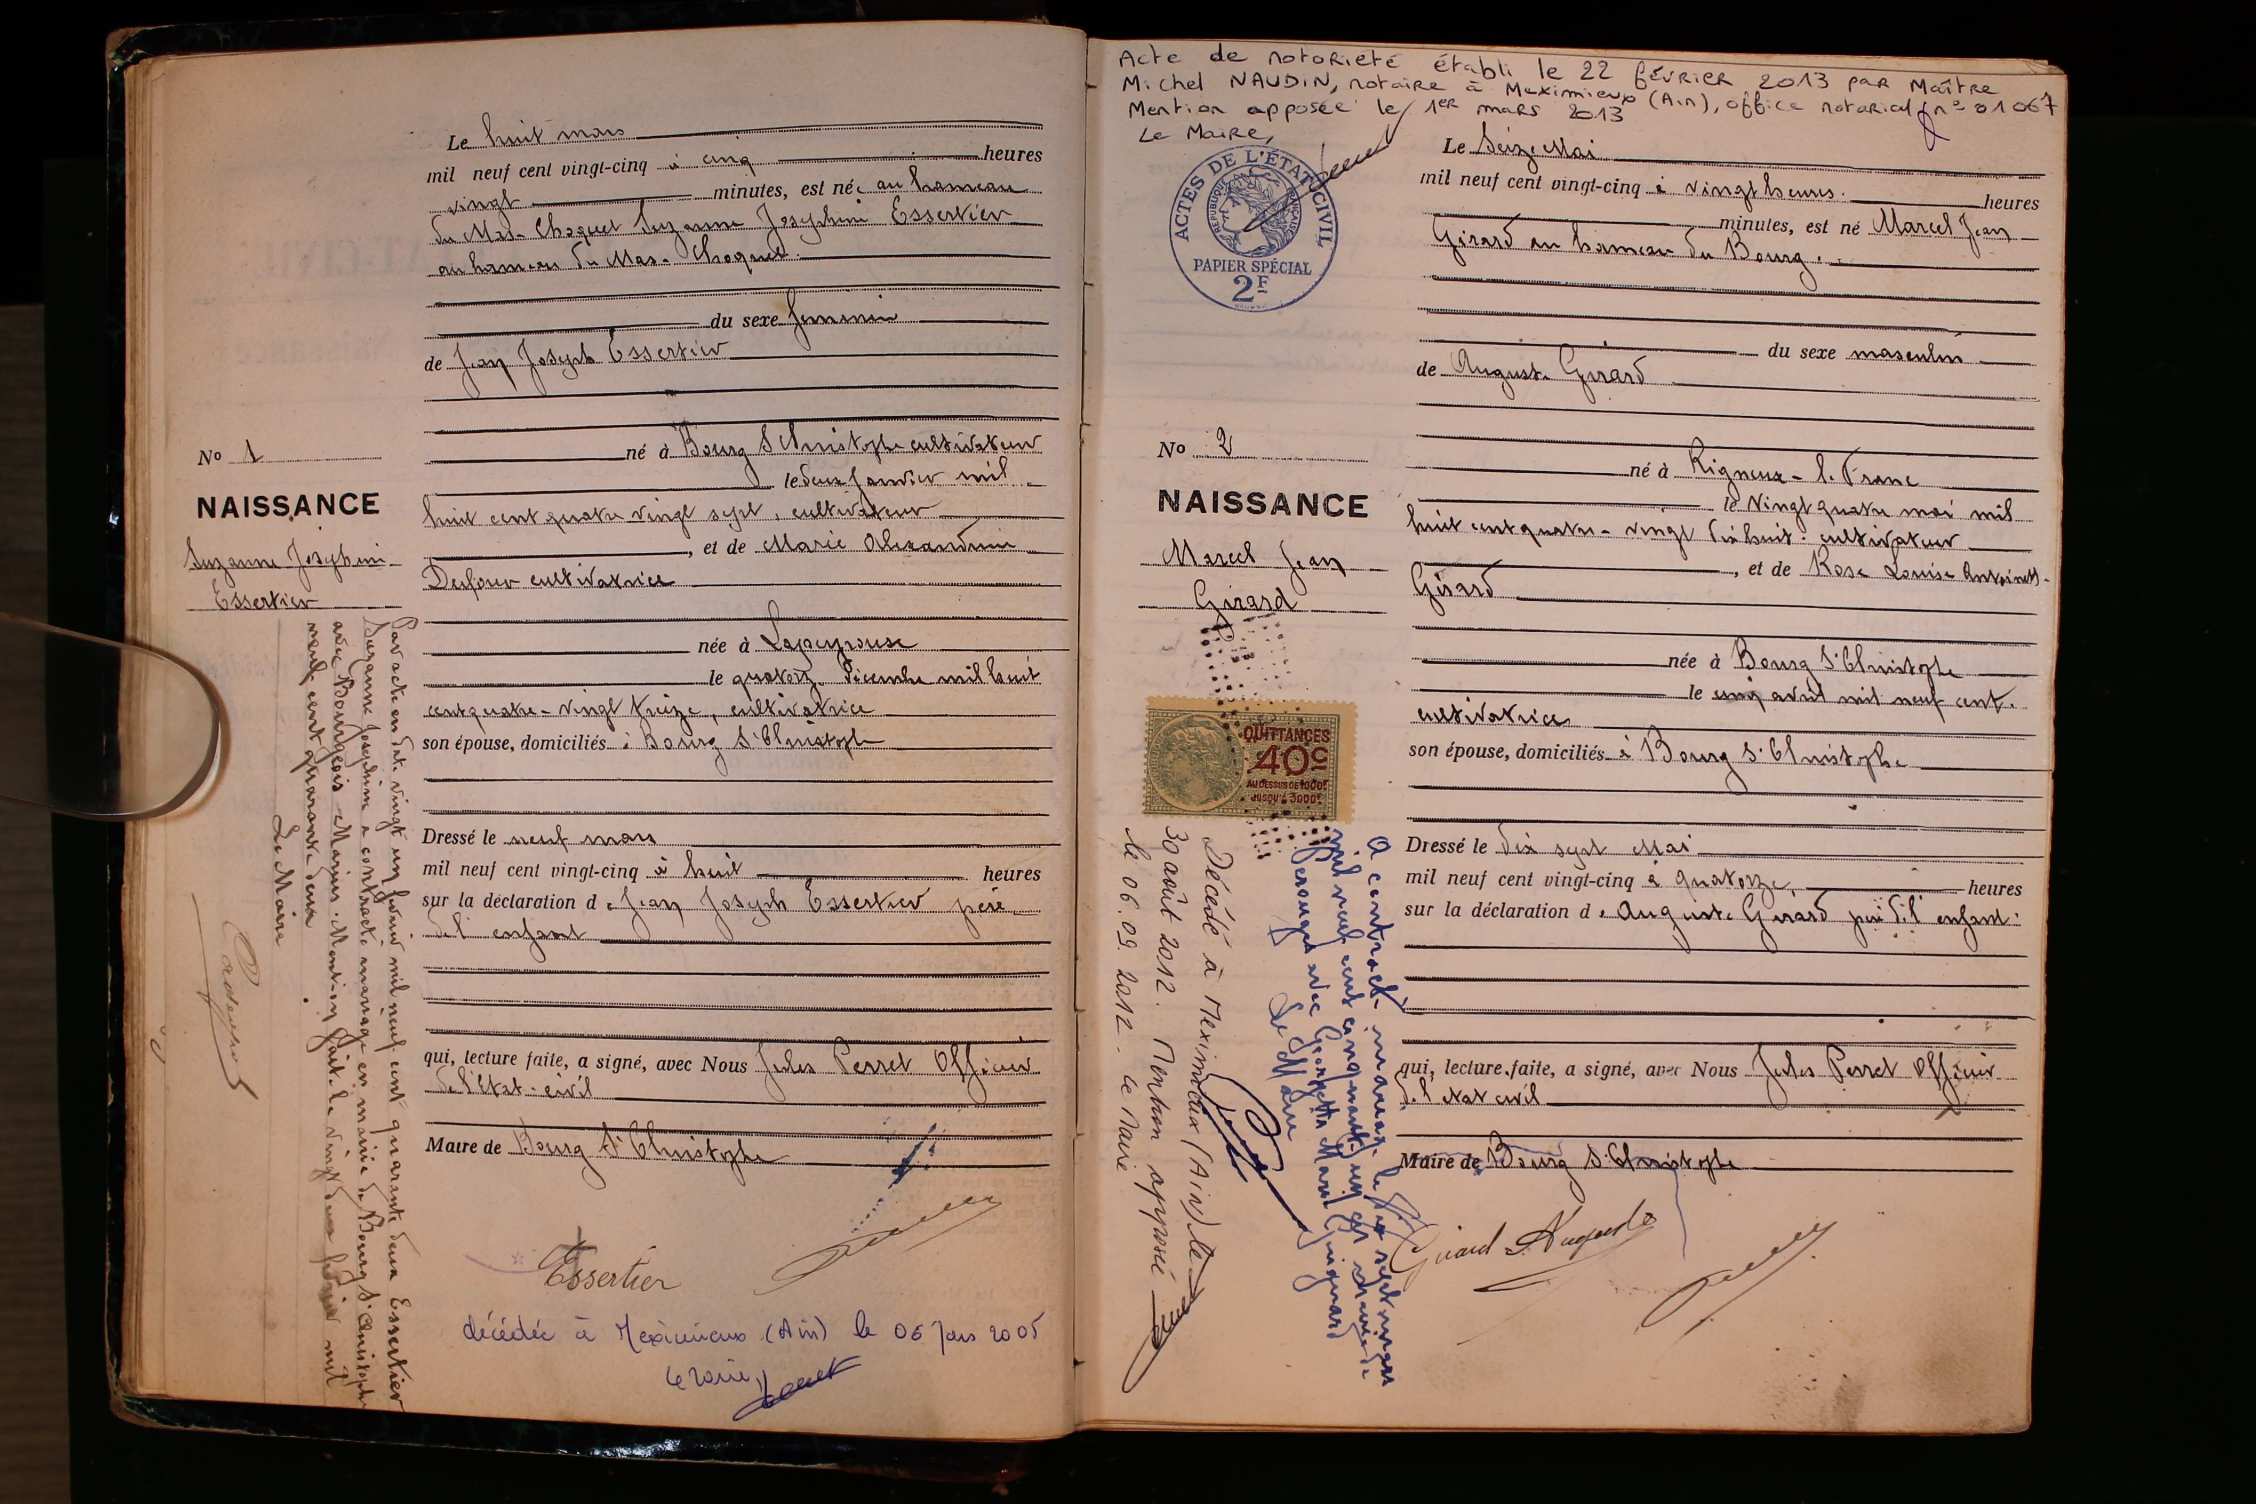 Le huit mars
mil neuf cent vingt-cinq à cinq heures
vingt minutes, est née au hameau
du Mas-Choquet Suzanne Joséphine Essertier
au hameau du Mas-Choquet.
du sexe féminin
de Jean Joseph Essertier
né à Bourg St Christophe cultivateur
le deux Janvier mil
huit cent quatre vingt sept, cultivateur
, et de Marie Alexandrine
Dufour cultivatrice
née à Lapeyrouse
le quatorze Décembre mil huit
cent quatre-vingt treize, cultivatrice
son épouse, domiciliés à Bourg St Christophe
Dressé le neuf mars
mil neuf cent vingt-cinq à huit heures
sur la déclaration de Jean Joseph Essertier père
de l'enfant
qui, lecture faite, a signé, avec Nous Jules Perret Officier
de l'Etat-civil
Maire de Bourg St Christophe
Essertier
décédée à Meximieux (Ain) le
Le Maire,
No 1
NAISSANCE
Suzanne Joséphine
Essertier
Par acte en date vingt un février mil neuf cent quarante deux Essertier
Suzanne Joséphine a contracté mariage en mairie de Bourg St Christophe
avec Bourgeois Marius. Mention faite le vingt deux février mil
neuf cent quarante deux
Le Maire
Acte de notorieté établi le 22 février 2013 par Maître
Michel NAUDIN, notaire à Meximieux (Ain), office notarial n° 01067
Mention apposée le 1er mars 2013
Le Maire,
ACTES DE L'ÉTAT CIVIL
REPUBLIQUE FRANÇAISE
PAPIER SPÉCIAL
2F
Le Seize Mai
mil neuf cent vingt-cinq à vingt heures. heures
minutes, est né Marcel Jean
Girard au hameau du Bourg.
du sexe masculin
de Auguste Girard
né à Rigneux-le-Franc
le Vingt quatre mai mil
huit cent quatre-vingt dix huit. cultivateur
, et de Rose Louise Antoinette
Girard
née à Bourg St Christophe
le cinq avril mil neuf cent.
cultivatrice
son épouse, domiciliés à Bourg St Christophe
Dressé le dix sept Mai
mil neuf cent vingt-cinq à quatorze, heures
sur la déclaration de Auguste Girard père de l'enfant.
qui, lecture faite, a signé, avec Nous Jules Perret Officier
de l'état civil
Maire de Bourg St Christophe
Girard Auguste
No 2
NAISSANCE
Marcel Jean
Girard
QUITTANCES
40c
AU DESSUS DE 1000F
JUSQU'À 3000F
A contracté mariage le sept mars
mil neuf cent cinquante en mairie de
Pérouges avec Georgette Marie Guignard
Le Maire
Décédé à Meximieux (Ain) le
30 août 2012. Mention apposée
le 06.09.2012. Le Maire